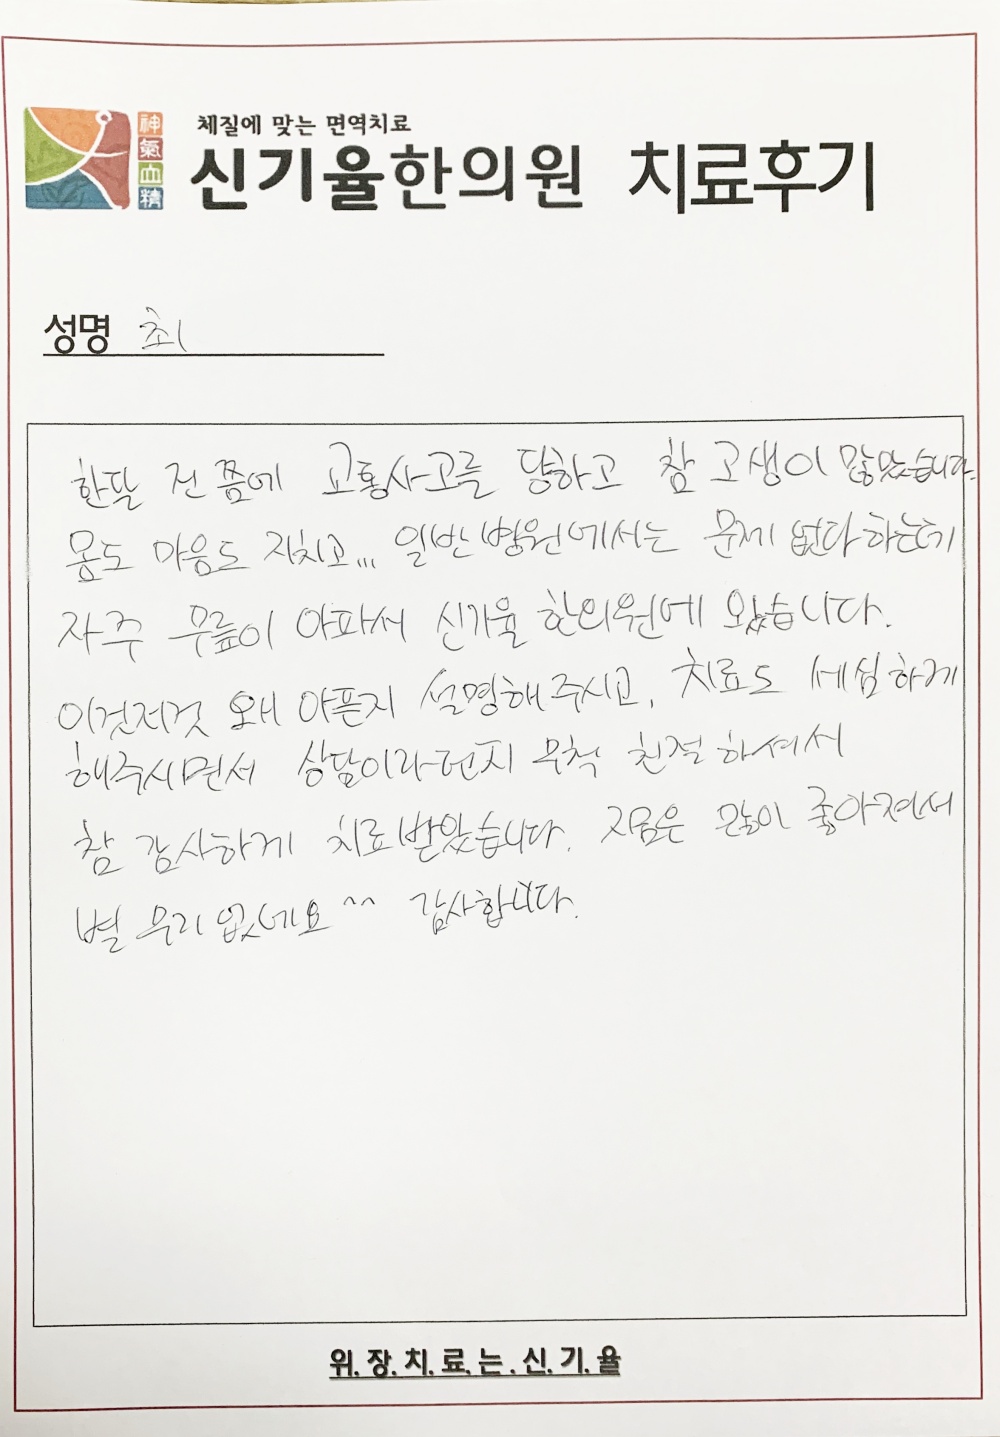 체질에 맞는 면역치료
神氣血精
신기율한의원 치료후기
성명 최
한달 전 쯤에 교통사고를 당하고 참 고생이 많았습니다.
몸도 마음도 지치고... 일반병원에서는 문제 없다하는데
자주 무릎이 아파서 신기율 한의원에 왔습니다.
이것저것 왜 아픈지 설명해주시고, 치료도 세심하게
해주시면서 상담이라던지 무척 친절하셔서
참 감사하게 치료받았습니다. 지금은 많이 좋아져서
별 무리 없네요 ^^ 감사합니다.
위.장.치.료.는.신.기.율